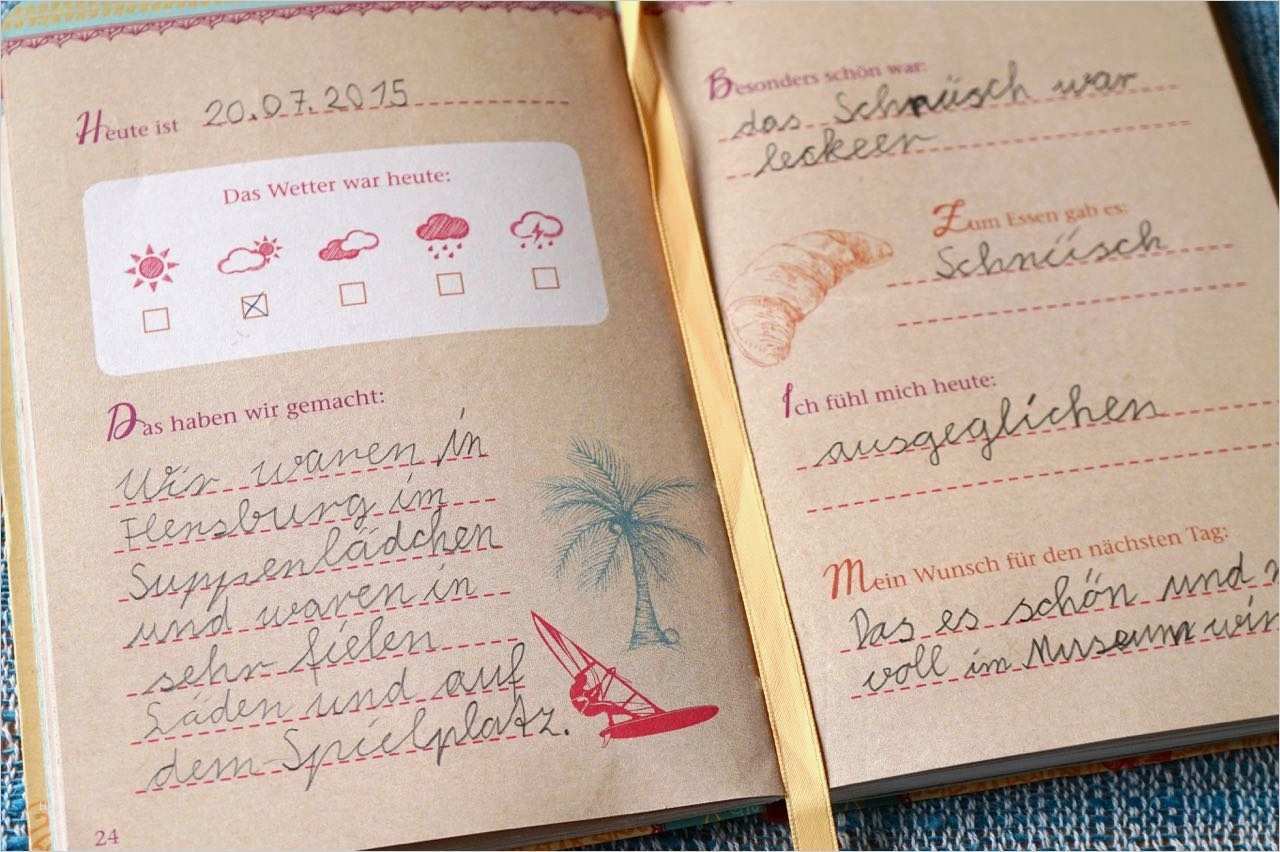 Heute ist 20.07.2015
Das Wetter war heute:
Das haben wir gemacht:
Wir waren in
Flensburg im
Suppenlädchen
und waren in
sehr fielen
Läden und auf
dem Spielplatz.
24
Besonders schön war:
das Schnüsch war
leckeer
Zum Essen gab es:
Schnüsch
Ich fühl mich heute:
ausgeglichen
Mein Wunsch für den nächsten Tag:
Das es schön und
voll im Museum wir